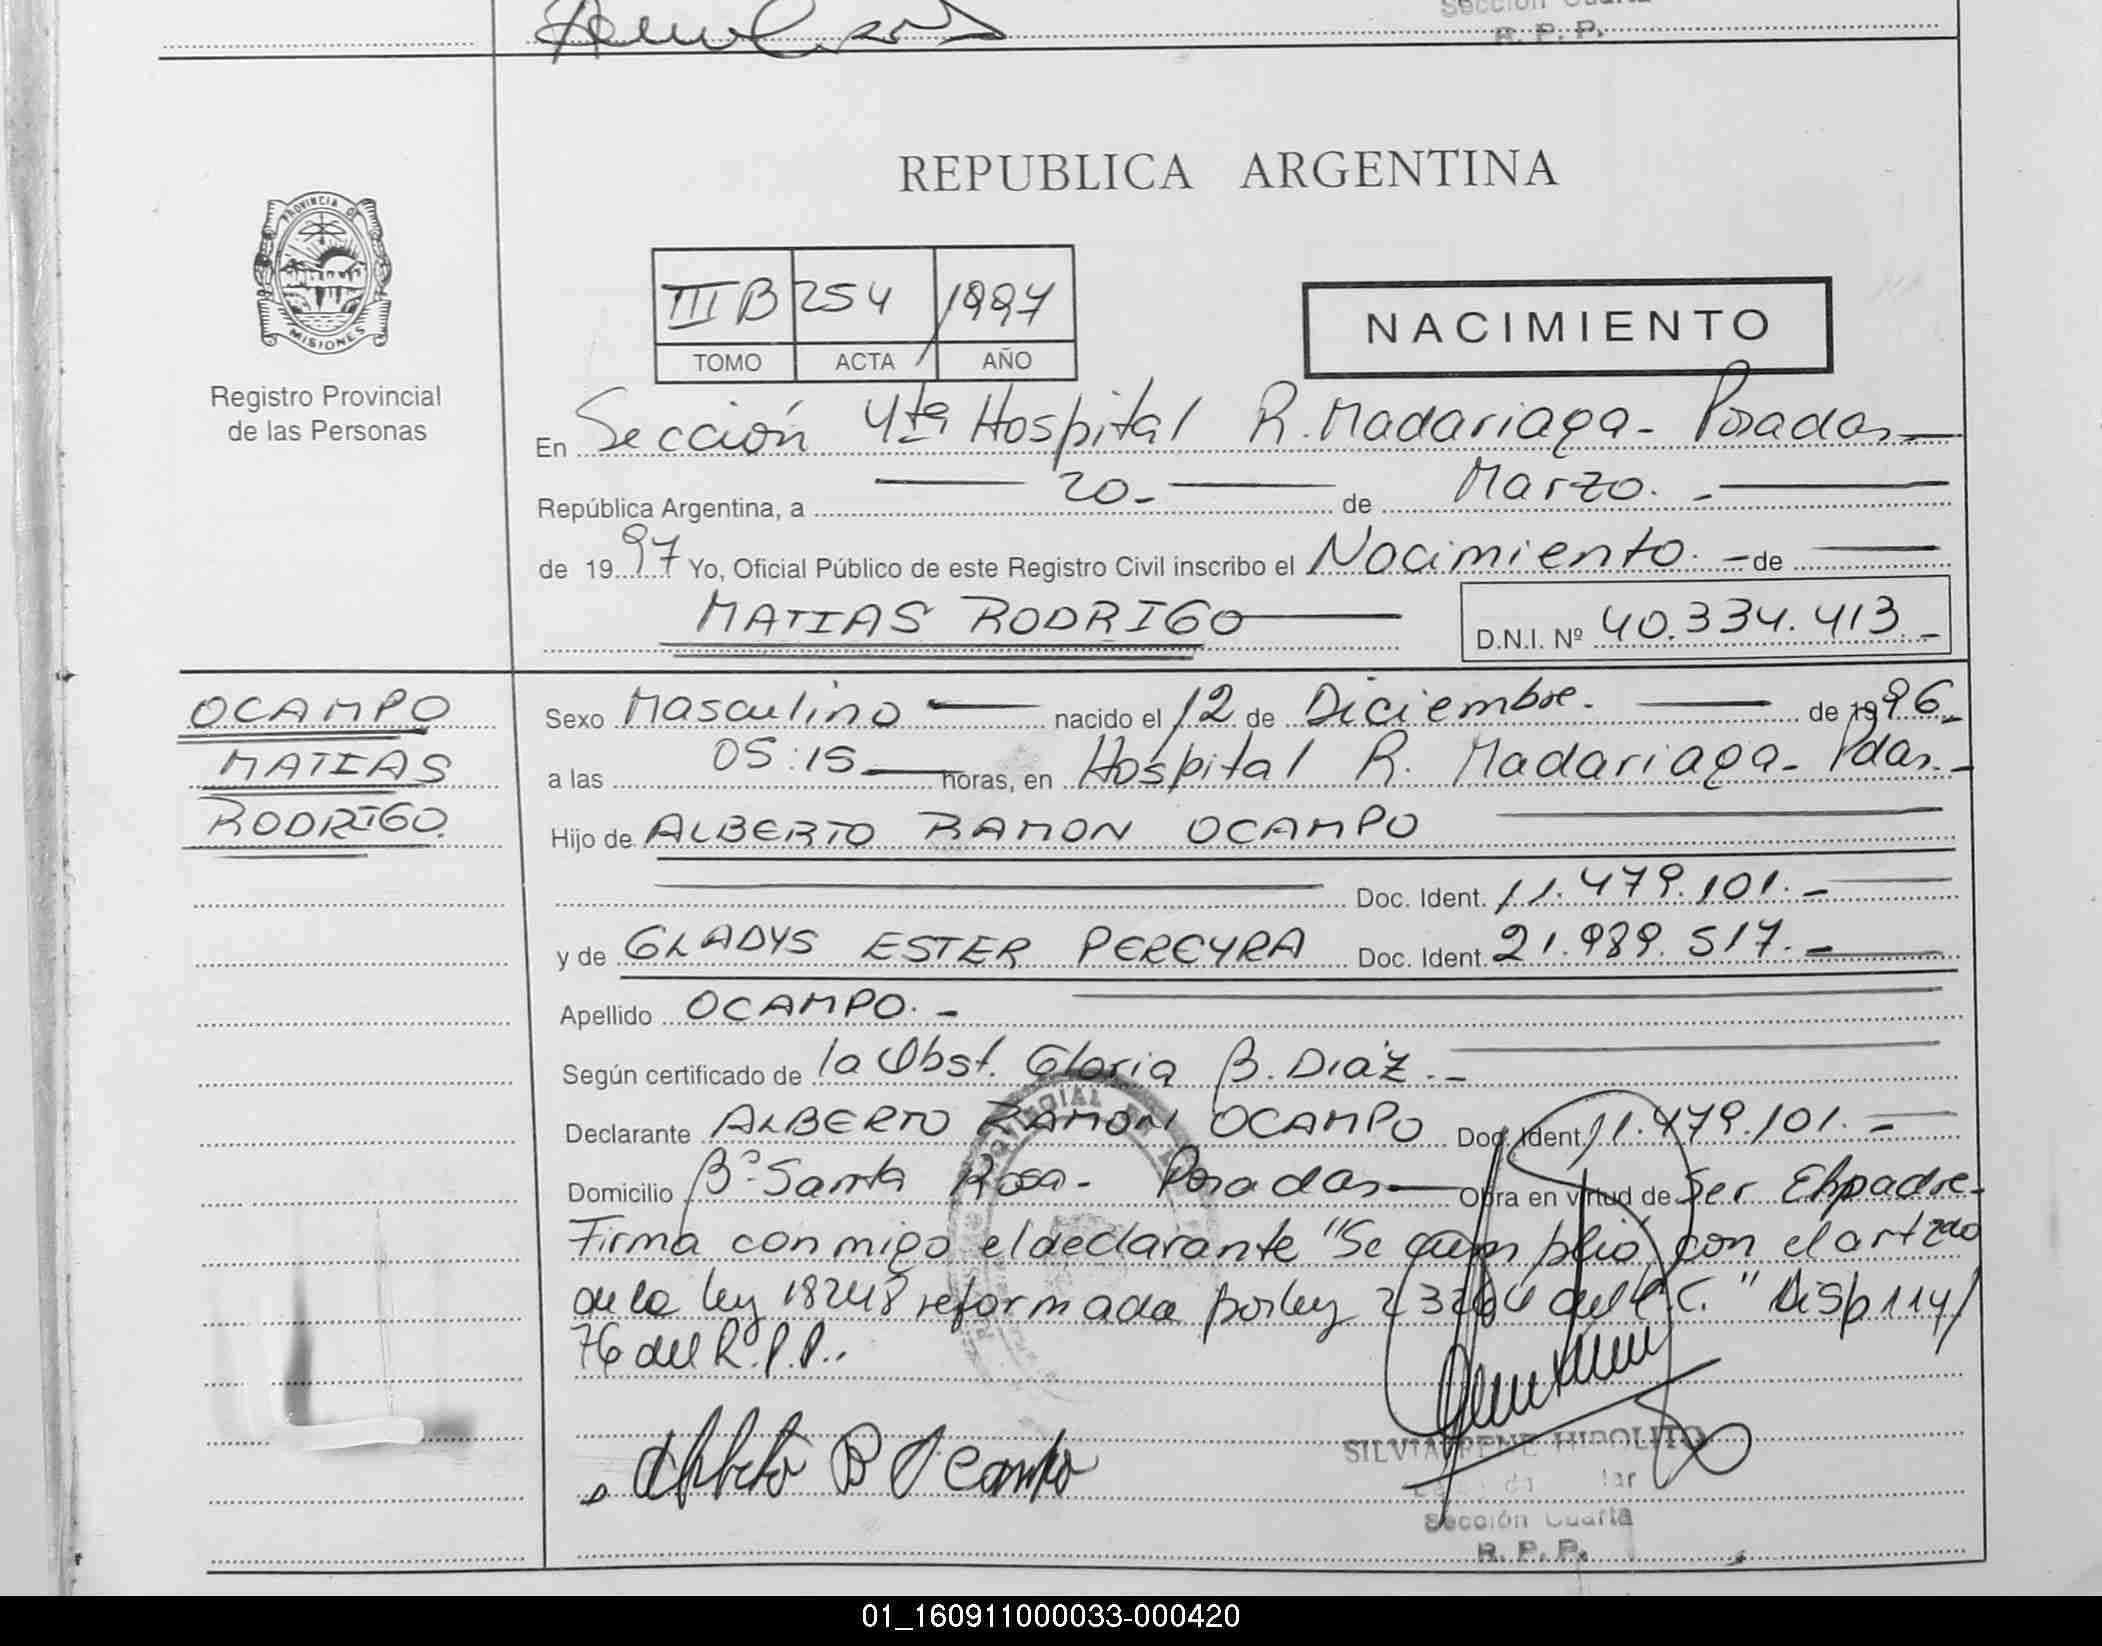 Sección Cuarta
R. P. P.
REPUBLICA ARGENTINA
PROVINCIA DE
MISIONES
Registro Provincial
de las Personas
III B 254 1997
TOMO ACTA AÑO
NACIMIENTO
En Sección 4ta Hospital R. Madariaga - Posadas
República Argentina, a 20- de Marzo. -
de 1997 Yo, Oficial Público de este Registro Civil inscribo el Nacimiento. - de
MATIAS RODRIGO D.N.I. Nº 40.334.413.-
OCAMPO
MATIAS
RODRIGO.
Sexo Masculino nacido el 12 de Diciembre. de 1996.-
a las 05:15 horas, en Hospital R. Madariaga - Pdas.-
Hijo de ALBERTO RAMON OCAMPO
Doc. Ident. 11.479.101.-
y de GLADYS ESTER PEREYRA Doc. Ident. 21.989.517.-
Apellido OCAMPO. -
Según certificado de la Obst. Gloria B. Diaz. -
Declarante ALBERTO RAMON OCAMPO Doc. Ident. 11.479.101. -
Domicilio Bº Santa Rosa - Posadas Obra en virtud de Ser El padre-
Firma conmigo el declarante "Se cumplió con el art 2do
de la ley 18248 reformada por ley 23264 del C.C." Disp 114/
76 del R.P.P..
Alberto R Ocampo
SILVIA IRENE HIPOLITO
Sección Cuarta
R. P. P.
01_160911000033-000420